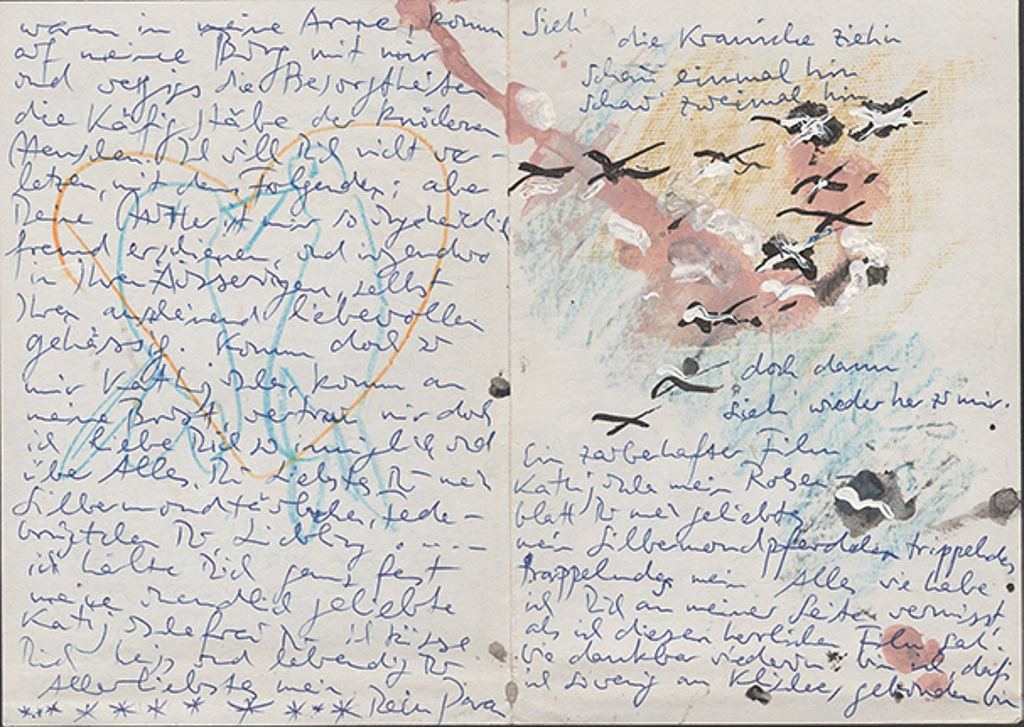 warm in meine Arme, komm
auf meine Burg mit mir
und vergiss die Besorgtheiten
die Käfigstäbe der
Menschen. Ich will Dich nicht ver-
letzen, mit dem Folgenden; aber
Deine Mutter ist mir so ungeheuerlich
fremd erschienen, und irgendwo
in Ihren Äusserungen, selbst
Ihren anscheinend liebevollen
gehässig. Komm doch zu
mir Kathi, komm an
meine Brust vertrau mir doch
ich liebe Dich so inniglich und
über Alles, Du Liebstes Du mein
Silbermondtäubchen, Fede-
brüstchen Du, Liebling . . - - -
ich halte Dich ganz fest
meine unendlich geliebte
Kathi Du ich küsse
Dich heiss und lebendig Du
Allerliebstes mein
Dein Para
Sieh'
die Kraniche ziehn
schau einmal hin
schau' zweimal hin
doch dann
sieh' wieder her zu mir.
Ein zauberhafter Film
Kathi mein Rosen-
blatt Du mein geliebtes
mein Silbermondpferdchen trippelndes
trappelndes mein Alles wie habe
ich Dich an meiner Seite vermisst
als ich diesen herrlichen Film sah.
Wie dankbar wiederum bin ich, daß
ich so wenig an Klischee, gebunden bin